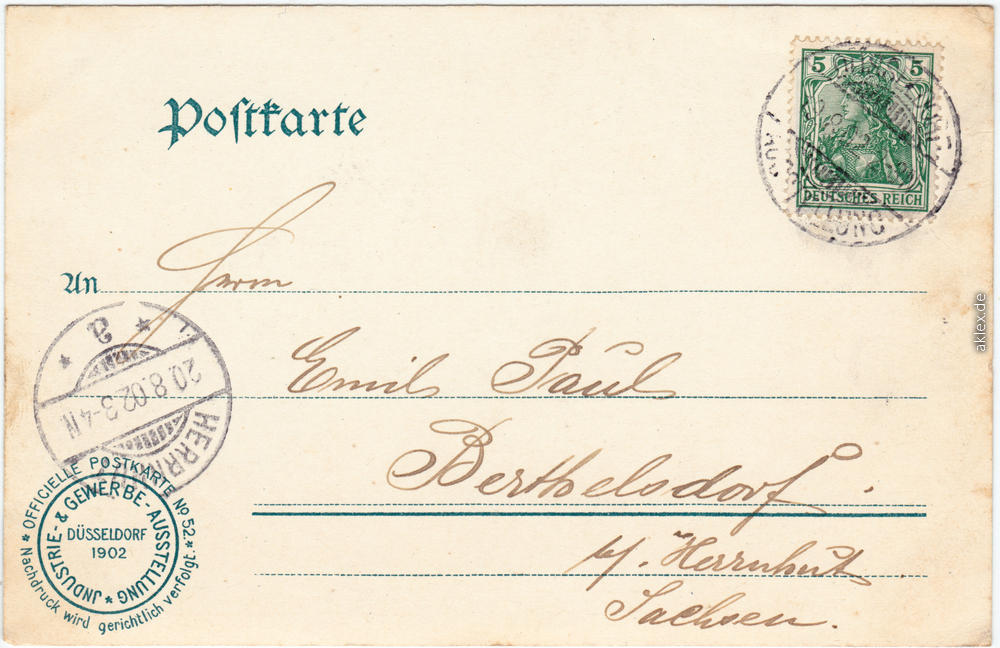 Postkarte
5 5
DEUTSCHES REICH
AUSSTELLUNG
An Herrn
Emil Paul
Berthelsdorf.
b/. Herrnhut
Sachsen.
a
20.8.02.3-4N
HERRNHUT
* OFFICIELLE POSTKARTE No 52. *
Nachdruck wird gerichtlich verfolgt.
JNDUSTRIE- & GEWERBE-AUSSTELLUNG *
DÜSSELDORF
1902
aklex.de